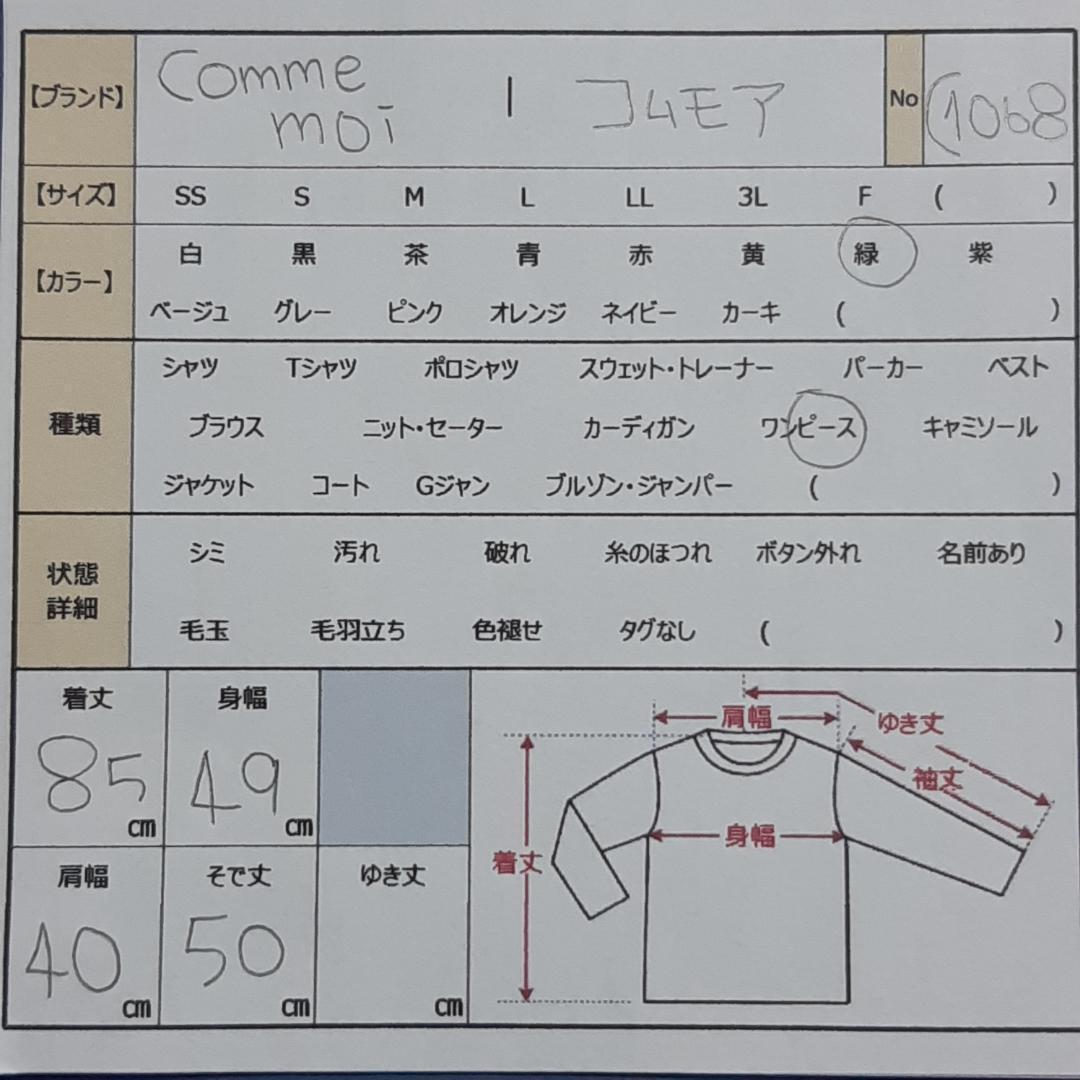 【ブランド】 Comme moi | コムモア No (1068
【サイズ】 SS S M L LL 3L F ( )
【カラー】 白 黒 茶 青 赤 黄 緑 紫
ベージュ グレー ピンク オレンジ ネイビー カーキ ( )
種類 シャツ Tシャツ ポロシャツ スウェット・トレーナー パーカー ベスト
ブラウス ニット・セーター カーディガン ワンピース キャミソール
ジャケット コート Gジャン ブルゾン・ジャンパー ( )
状態詳細 シミ 汚れ 破れ 糸のほつれ ボタン外れ 名前あり
毛玉 毛羽立ち 色褪せ タグなし ( )
着丈 身幅
85 cm 49 cm
肩幅 そで丈 ゆき丈
40 cm 50 cm cm
肩幅 ゆき丈
袖丈
身幅
着丈